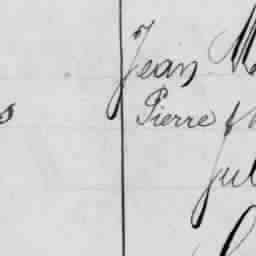 Jean M
s
Pierre
Jul